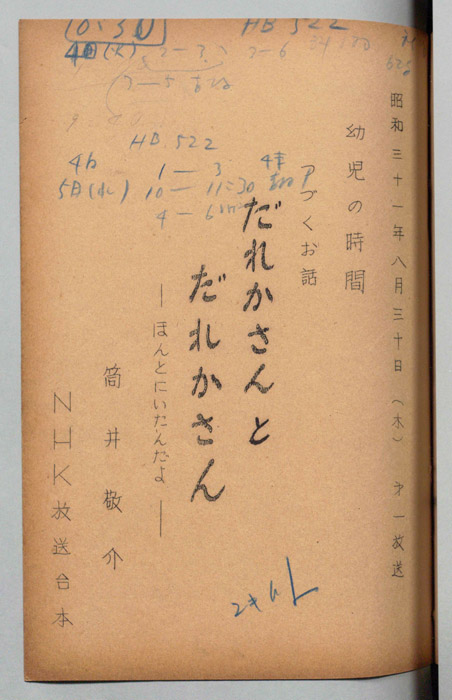 昭和三十一年八月三十日(木) 才一放送
幼児の時間
つづくお話
だれかさんと
だれかさん
―ほんとにいたんだよ―
筒井敬介
NHK放送台本
HB 522
HB 522
4日
1 ― 3
5日(水) 10 ― 11:30
4 ― 6
2 ― 6